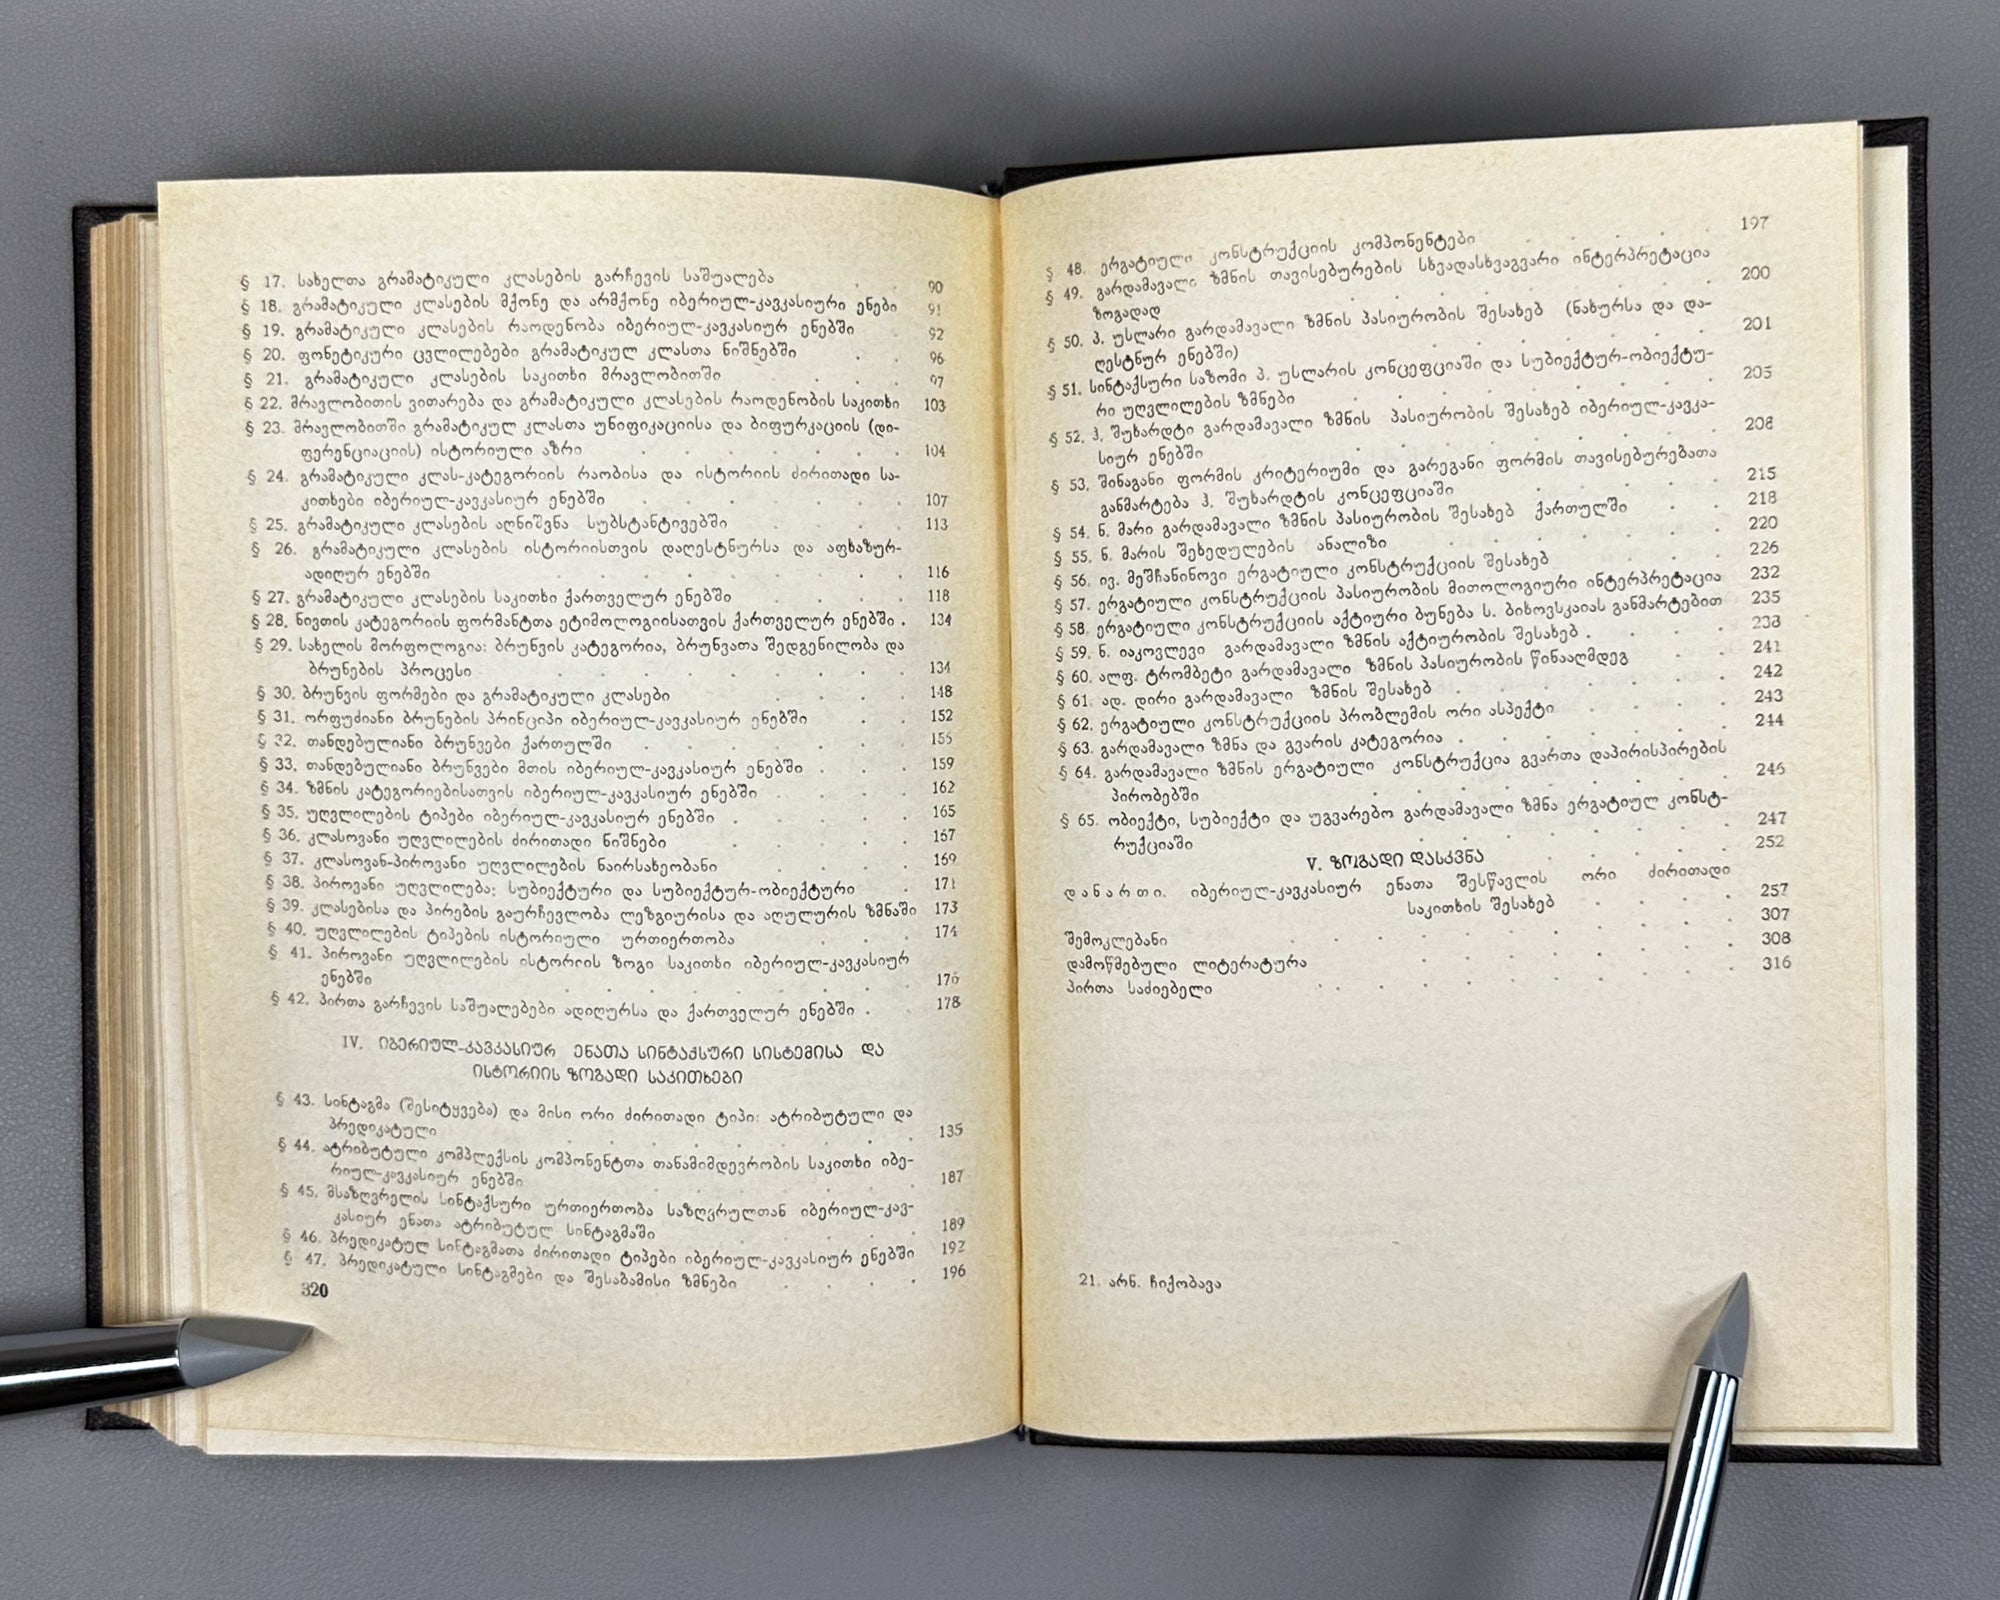 § 17. სახელთა გრამატიკული კლასების გარჩევის საშუალება . . 90
§ 18. გრამატიკული კლასების მქონე და არმქონე იბერიულ-კავკასიური ენები 91
§ 19. გრამატიკული კლასების რაოდენობა იბერიულ-კავკასიურ ენებში . 92
§ 20. ფონეტიკური ცვლილებები გრამატიკულ კლასთა ნიშნებში . . 96
§ 21. გრამატიკული კლასების საკითხი მრავლობითში . . . . 97
§ 22. მრავლობითის ვითარება და გრამატიკული კლასების რაოდენობის საკითხი 103
§ 23. მრავლობითში გრამატიკულ კლასთა უნიფიკაციისა და ბიფურკაციის (დი-
ფერენციაციის) ისტორიული აზრი . . . . . . . 104
§ 24. გრამატიკული კლას-კატეგორიის რაობისა და ისტორიის ძირითადი სა-
კითხები იბერიულ-კავკასიურ ენებში . . . . . . 107
§ 25. გრამატიკული კლასების აღნიშვნა სუბსტანტივებში . . . . 113
§ 26. გრამატიკული კლასების ისტორიისთვის დაღესტნურსა და აფხაზურ-
ადიღურ ენებში . . . . . . . . 116
§ 27. გრამატიკული კლასების საკითხი ქართველურ ენებში . . . . 118
§ 28. ნივთის კატეგორიის ფორმანტთა ეტიმოლოგიისათვის ქართველურ ენებში . 134
§ 29. სახელის მორფოლოგია: ბრუნვის კატეგორია, ბრუნვათა შედგენილობა და
ბრუნების პროცესი . . . . . . . . 134
§ 30. ბრუნვის ფორმები და გრამატიკული კლასები . . . . 148
§ 31. ორფუძიანი ბრუნების პრინციპი იბერიულ-კავკასიურ ენებში . . 152
§ 32. თანდებულიანი ბრუნვები ქართულში . . . . . . 155
§ 33. თანდებულიანი ბრუნვები მთის იბერიულ-კავკასიურ ენებში . . . 159
§ 34. ზმნის კატეგორიებისათვის იბერიულ-კავკასიურ ენებში . . . . 162
§ 35. უღვლილების ტიპები იბერიულ-კავკასიურ ენებში . . . . . 165
§ 36. კლასოვანი უღვლილების ძირითადი ნიშნები . . . . . 167
§ 37. კლასოვან-პიროვანი უღვლილების ნაირსახეობანი . . . . 169
§ 38. პიროვანი უღვლილება: სუბიექტური და სუბიექტურ-ობიექტური . 171
§ 39. კლასებისა და პირების გაურჩევლობა ლეზგიურისა და აღულურის ზმნაში 173
§ 40. უღვლილების ტიპების ისტორიული ურთიერთობა . . . 174
§ 41. პიროვანი უღვლილების ისტორიის ზოგი საკითხი იბერიულ-კავკასიურ
ენებში . . . . . . . . . 176
§ 42. პირთა გარჩევის საშუალებები ადიღურსა და ქართველურ ენებში . . 178
IV. ᲘᲑᲔᲠᲘᲣᲚ-ᲙᲐᲕᲙᲐᲡᲘᲣᲠ ᲔᲜᲐᲗᲐ ᲡᲘᲜᲢᲐᲥᲡᲣᲠᲘ ᲡᲘᲡᲢᲔᲛᲘᲡᲐ ᲓᲐ
ᲘᲡᲢᲝᲠᲘᲘᲡ ᲖᲝᲒᲐᲓᲘ ᲡᲐᲙᲘᲗᲮᲔᲑᲘ
§ 43. სინტაგმა (შესიტყვება) და მისი ორი ძირითადი ტიპი: ატრიბუტული და
პრედიკატული . . . . . . . . . 135
§ 44. ატრიბუტული კომპლექსის კომპონენტთა თანამიმდევრობის საკითხი იბე-
რიულ-კავკასიურ ენებში . . . . . . . 187
§ 45. მსაზღვრელის სინტაქსური ურთიერთობა საზღვრულთან იბერიულ-კავ-
კასიურ ენათა ატრიბუტულ სინტაგმაში . . . . . 189
§ 46. პრედიკატულ სინტაგმათა ძირითადი ტიპები იბერიულ-კავკასიურ ენებში 192
§ 47. პრედიკატული სინტაგმები და შესაბამისი ზმნები . . . . 196
320
§ 48. ერგატიული კონსტრუქციის კომპონენტები . . . . . 197
§ 49. გარდამავალი ზმნის თავისებურების სხვადასხვაგვარი ინტერპრეტაცია
ზოგადად . . . . . . . . . 200
§ 50. პ. უსლარი გარდამავალი ზმნის პასიურობის შესახებ (ნახურსა და და-
ღესტნურ ენებში) . . . . . . . . 201
§ 51. სინტაქსური საზომი პ. უსლარის კონცეფციაში და სუბიექტურ-ობიექტუ-
რი უღვლილების ზმნები . . . . . . . 205
§ 52. ჰ. შუხარდტი გარდამავალი ზმნის პასიურობის შესახებ იბერიულ-კავკა-
სიურ ენებში . . . . . . . . . 208
§ 53. შინაგანი ფორმის კრიტერიუმი და გარეგანი ფორმის თავისებურებათა
განმარტება ჰ. შუხარდტის კონცეფციაში . . . . . 215
§ 54. ნ. მარი გარდამავალი ზმნის პასიურობის შესახებ ქართულში . . 218
§ 55. ნ. მარის შეხედულების ანალიზი . . . . . . 220
§ 56. ივ. მეშჩანინოვი ერგატიული კონსტრუქციის შესახებ . . . 226
§ 57. ერგატიული კონსტრუქციის პასიურობის მითოლოგიური ინტერპრეტაცია 232
§ 58. ერგატიული კონსტრუქციის აქტიური ბუნება ს. ბიხოვსკაიას განმარტებით 235
§ 59. ნ. იაკოვლევი გარდამავალი ზმნის აქტიურობის შესახებ . . . . 238
§ 60. ალფ. ტრომბეტი გარდამავალი ზმნის პასიურობის წინააღმდეგ . . 241
§ 61. ად. დირი გარდამავალი ზმნის შესახებ . . . . . . 242
§ 62. ერგატიული კონსტრუქციის პრობლემის ორი ასპექტი . . . . 243
§ 63. გარდამავალი ზმნა და გვარის კატეგორია . . . . . . 244
§ 64. გარდამავალი ზმნის ერგატიული კონსტრუქცია გვართა დაპირისპირების
პირობებში . . . . . . . . 246
§ 65. ობიექტი, სუბიექტი და უგვარებო გარდამავალი ზმნა ერგატიულ კონსტ-
რუქციაში . . . . . . . . . 247
V. ᲖᲝᲒᲐᲓᲘ ᲓᲐᲡᲙᲕᲜᲐ . . . . . 252
დანართი. იბერიულ-კავკასიურ ენათა შესწავლის ორი ძირითადი
საკითხის შესახებ . . . . 257
შემოკლებანი . . . . . . . . . 307
დამოწმებული ლიტერატურა . . . . . . . 308
პირთა საძიებელი . . . . . . . . . 316
21. არნ. ჩიქობავა